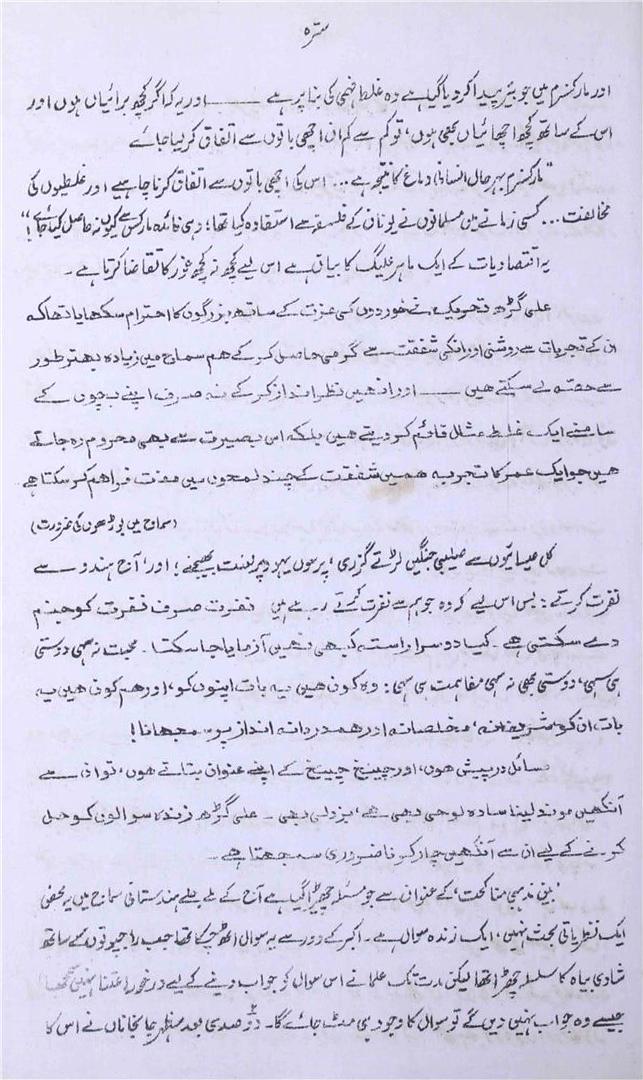 سترہ
اور مارکسزم میں جو بیَر پیدا کر دیا گیا ہے وہ غلط فہمی کی بنا پر ہے ــــــ اور یہ کہ اگر کچھ برائیاں ہوں اور
اس کے ساتھ کچھ اچھائیاں بھی ہوں، تو کم سے کم ان اچھی باتوں سے اتفاق کر لیا جائے
"مارکسزم بہرحال انسانی دماغ کا نتیجہ ہے... اس کی اچھی باتوں سے اتفاق کرنا چاہیے اور غلطیوں کی
مخالفت... کسی زمانے میں مسلمانوں نے یونان کے فلسفہ سے استفادہ کیا تھا؛ وہی فائدہ مارکس سے کیوں نہ حاصل کیا جائے!"
یہ اقتصادیات کے ایک ماہر علیگ کا بیان ہے اس لیے کچھ نہ کچھ غور کا تقاضا کرتا ہے۔
علی گڑھ تحریک نے خوردوں کی عزت کے ساتھ بزرگوں کا احترام سکھایا تھا کہ
ان کے تجربات سے روشنی اور انکی شفقت سے گرمی حاصل کر کے ہم سماج میں زیادہ بہتر طور
سے حصّہ لے سکتے ہیں ــــــ اور انھیں نظر انداز کر کے نہ صرف اپنے بچوں کے
سامنے ایک غلط مثال قائم کر دیتے ہیں بلکہ اس بصیرت سے بھی محروم رہ جاتے
ہیں جو ایک عمر کا تجربہ ہمیں شفقت کے چند لمحوں میں مفت فراہم کر سکتا ہے
(سماج میں بوڑھوں کی ضرورت)
کل عیسائیوں سے صلیبی جنگیں لڑتے گزری، پرسوں یہود پر لعنت بھیجتے؛ اور، آج ہندو سے
نفرت کرتے: بس اس لیے کہ وہ جو ہم سے نفرت کرتے رہے ہیں نفرت صرف نفرت کو جنم
دے سکتی ہے۔ کیا دوسرا راستہ کبھی نہیں آزمایا جا سکتا۔ محبت نہ سہی دوستی
ہی سہی، دوستی بھی نہ سہی مفاہمت ہی سہی: وہ کون ہیں یہ بات اپنوں کو، اور ہم کون ہیں یہ
بات ان کو، شریفانہ، مخلصانہ اور ہمدردانہ انداز پر، سمجھانا!
مسائل درپیش ہوں، اور چیخ چیخ کے اپنے عنوان بتاتے ہوں، تو ان سے
آنکھیں موند لینا سادہ لوحی بھی ہے، بزدلی بھی۔ علی گڑھ زندہ سوالوں کو حل
کرنے کے لیے ان سے آنکھیں چار کرنا ضروری سمجھتا ہے۔
'بین مذہبی مناکحت' کے عنوان سے جو مسئلہ چھیڑا گیا ہے آج کے ملے جلے ہندستانی سماج میں یہ محض
ایک نظریاتی بحث نہیں، ایک زندہ سوال ہے۔ اکبر کے دور سے یہ سوال اٹھ چکا تھا جب راجپوتوں کے ساتھ
شادی بیاہ کا سلسلہ چھڑا تھا لیکن مدت تک علما نے اس سوال کو جواب دینے کے لیے درخور اعتنا نہیں سمجھا
جیسے وہ جواب نہیں دیں گے تو سوال کا وجود ہی مٹ جائے گا۔ دو صدی بعد مظہر جانجاناں نے اس کا